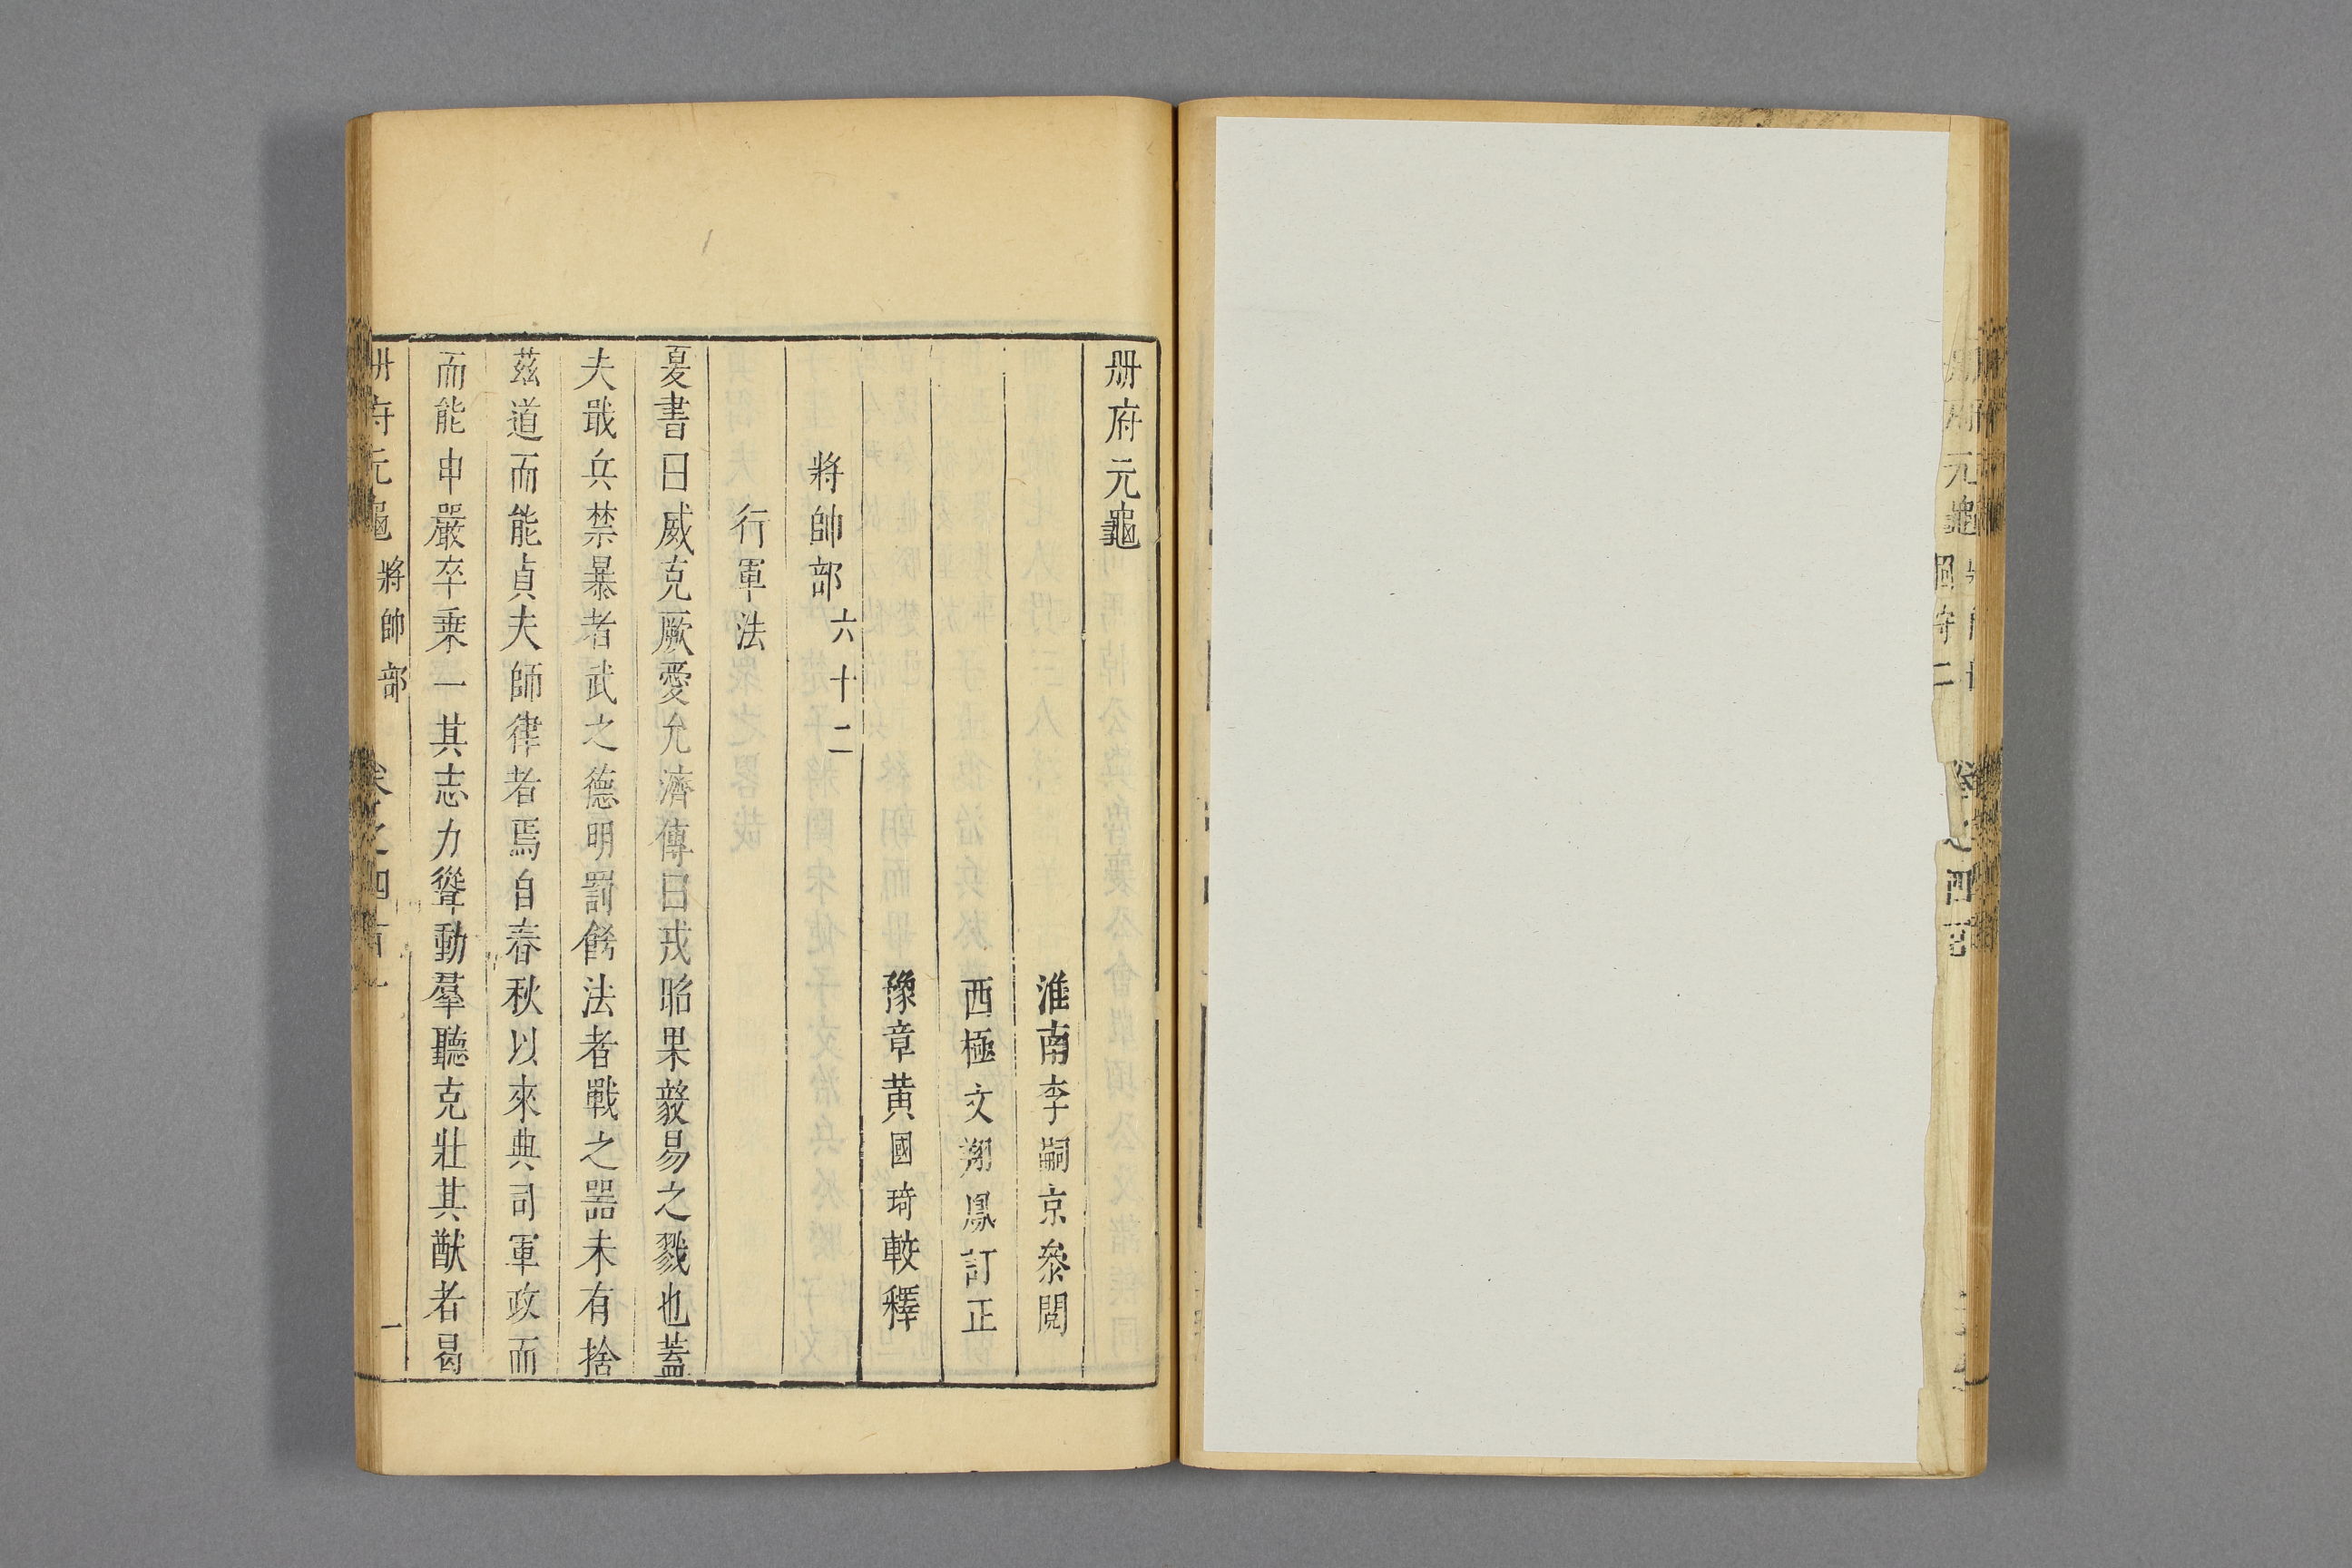 册府元龜
淮南李嗣京叅閱
西極文翔鳳訂正
豫章黃國琦較釋
將帥部六十二
行軍法
夏書曰威克厥愛允濟傳曰戎昭果毅易之戮也蓋
夫戢兵禁暴者武之德明罰飭法者戰之器未有捨
茲道而能貞夫師律者焉自春秋以來典司軍政而
而能申嚴卒乗一其志力聳動羣聽克壯其猷者曷
册府元龜 將帥部 卷之四百一 一